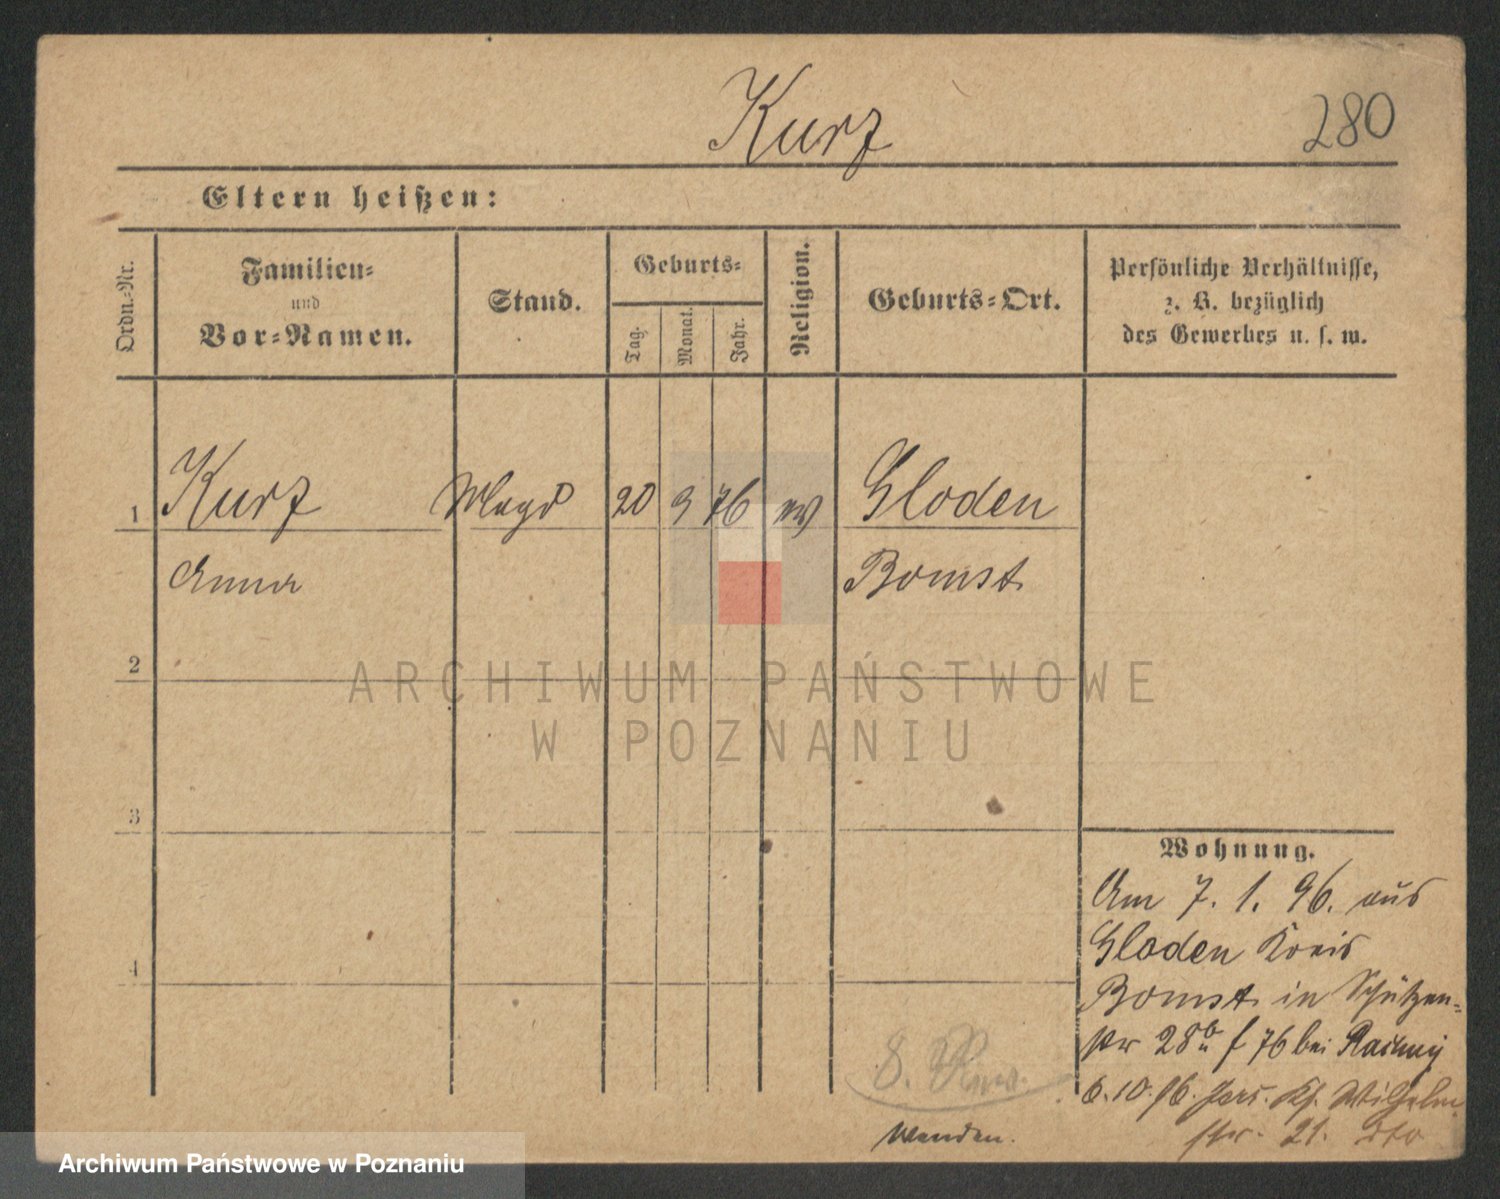 Kurz
280
Eltern heißen:
Ordn.-Nr.
Familien-
und
Vor-Namen.
Stand.
Geburts-
Tag.
Monat.
Jahr.
Religion.
Geburts-Ort.
Persönliche Verhältnisse,
z. B. bezüglich
des Gewerbes u. s. w.
1 Kurz Magd 20 9 76 ev Gloden
Anna Bomst
2
ARCHIWUM PAŃSTWOWE
W POZNANIU
3
Wohnung.
Am 7. 1. 96. aus
Gloden Kreis
4
Bomst in Schützen-
str 28 b 76 bei
8.
6. 10. 96. Wilhelm
str. 21. dto
Wenden.
Archiwum Państwowe w Poznaniu